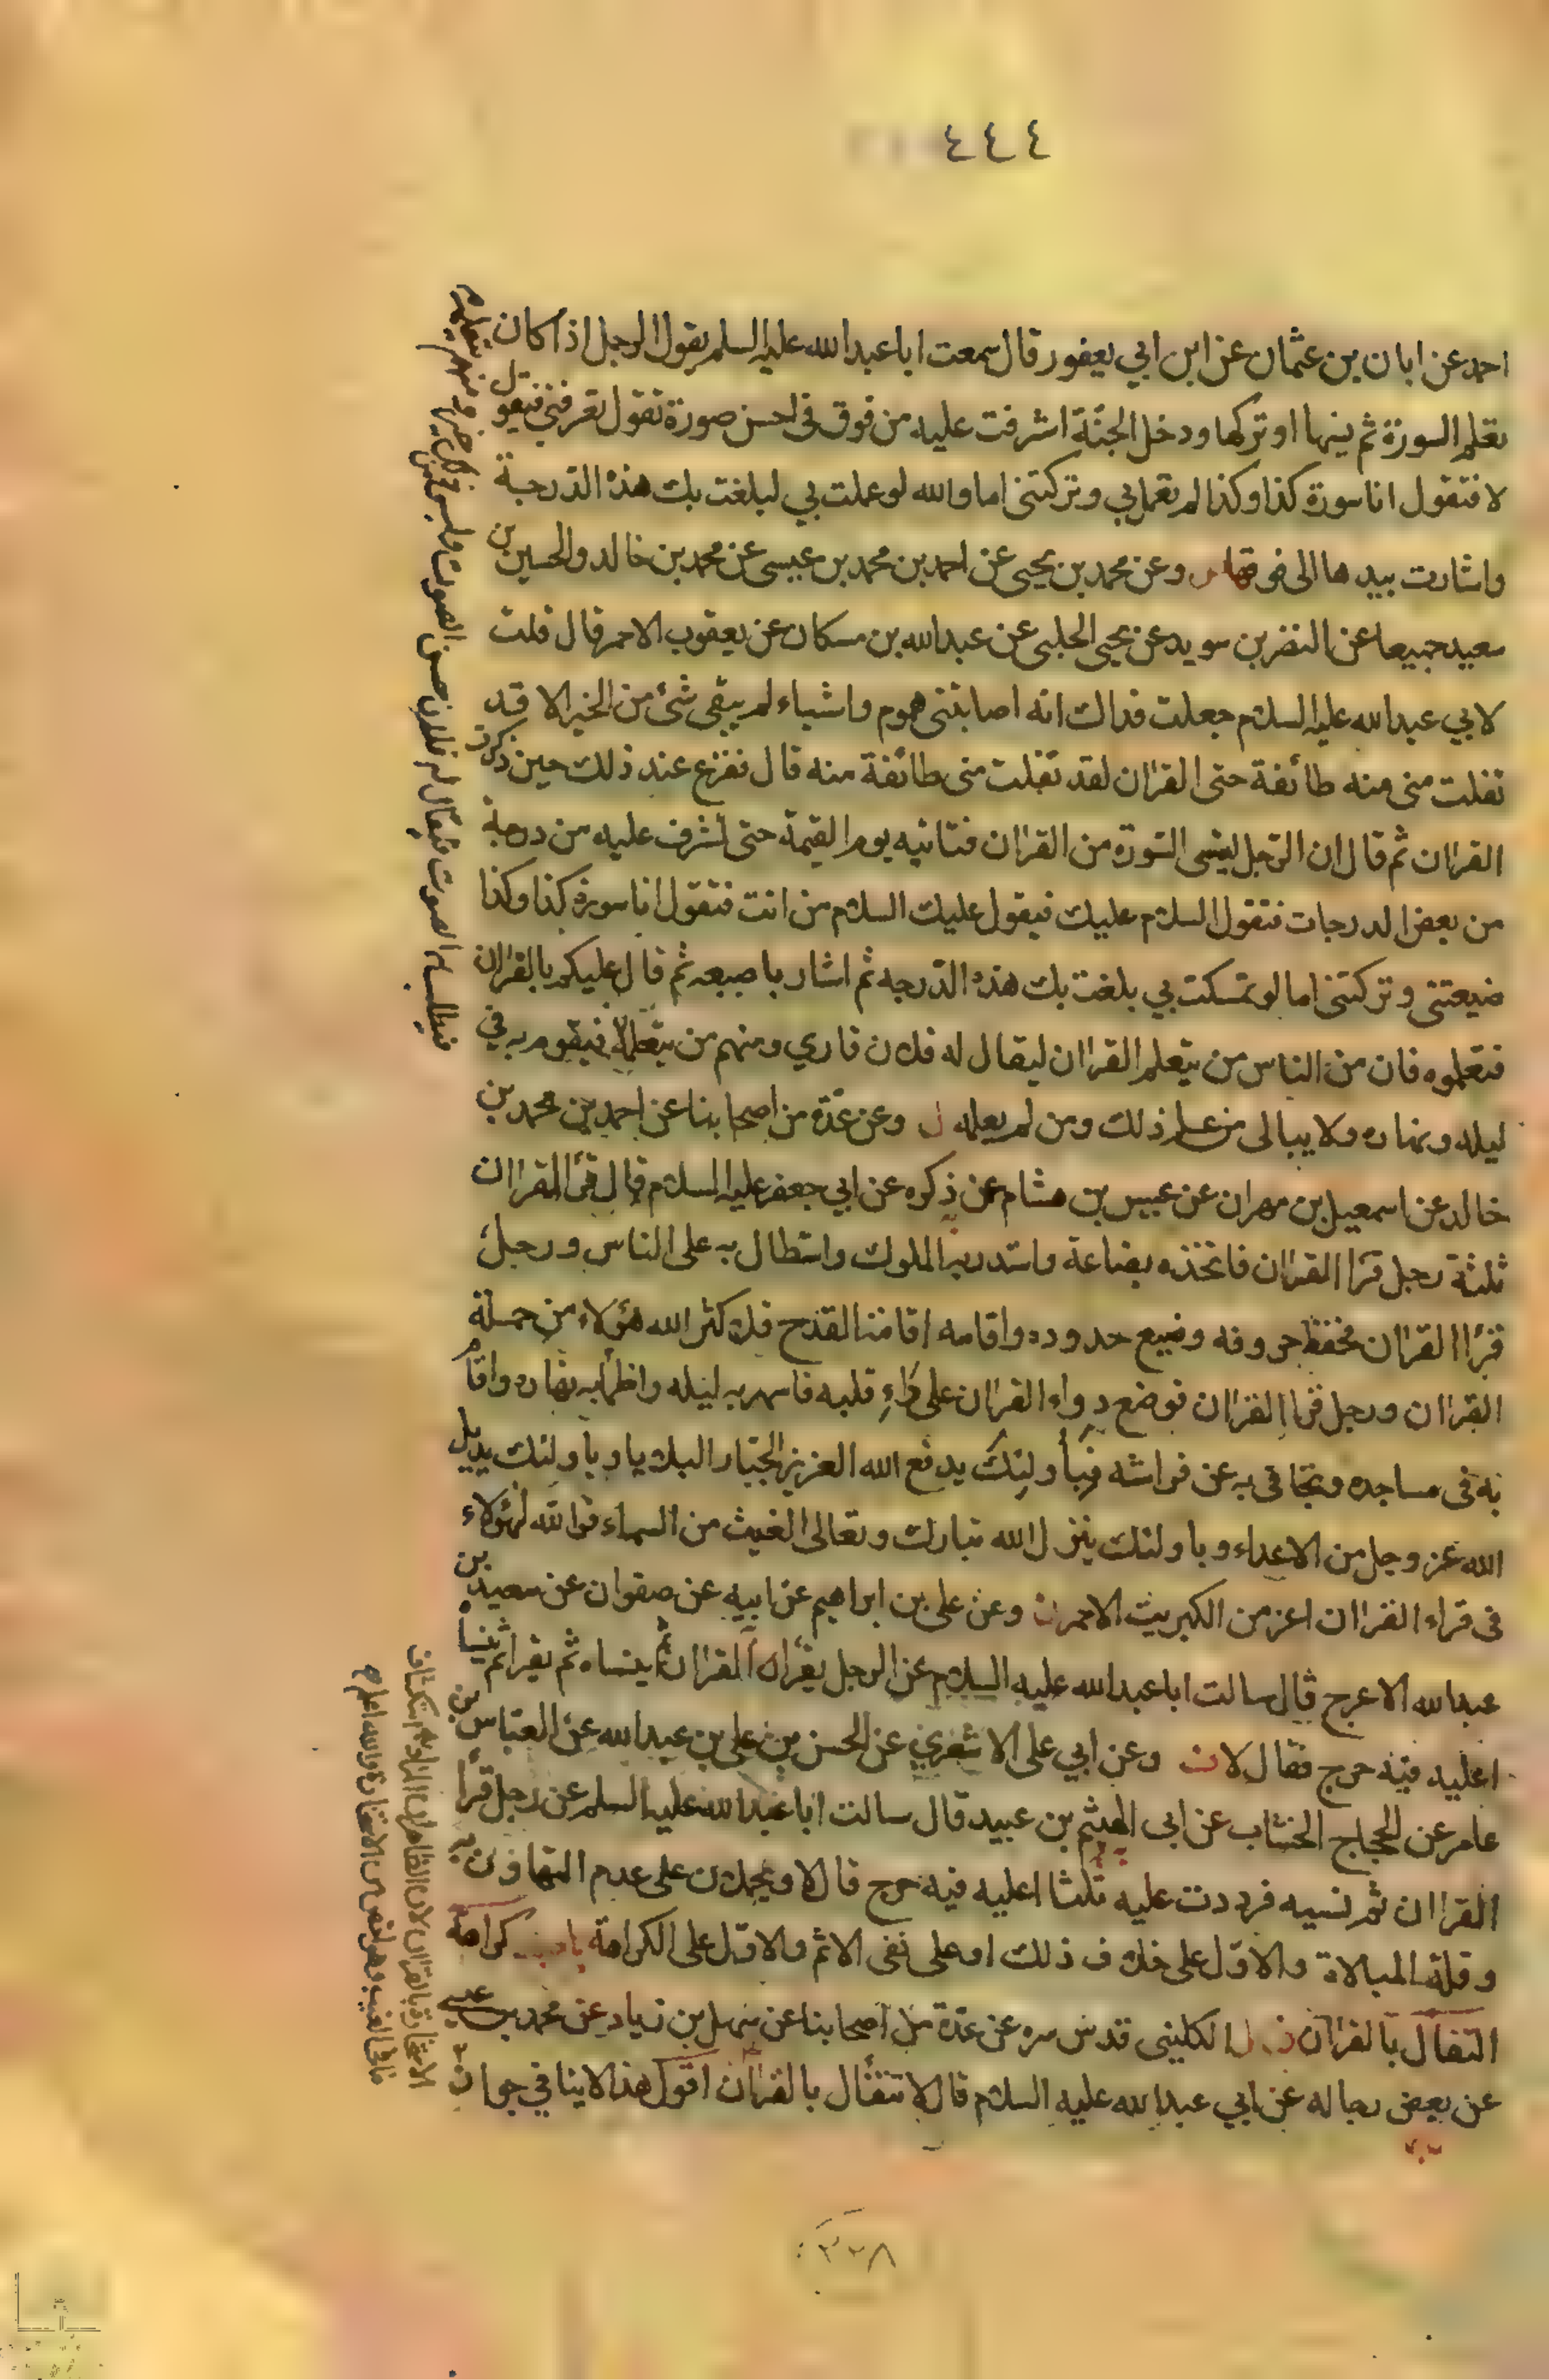 ٤٤٤
احمد عن ابان بن عثمان عن ابن ابي يعفور قال سمعت ابا عبد الله عليه السلم يقول الرجل اذا كان
تعلم السورة ثم نسيها او تركها ودخل الجنّة اشرفت عليه من فوق في احسن صورة تقول تعرفني فيقول
لا فتقول انا سورة كذا وكذا لم تعمل بي وتركتني اما والله لو عملت بي لبلغت بك هذه الدّرجة
واشارت بيدها الى فوقها وعن محمد بن يحيى عن احمد بن محمد بن عيسى عن محمد بن خالد والحسين بن
سعيد جميعا عن النضر بن سويد عن يحيى الحلبى عن عبد الله بن مسكان عن يعقوب الاحمر قال قلت
لابي عبد الله عليه السلام جعلت فداك انه اصابتنى هموم واشياء لم يبقى شئ من الخير الا قد
تفلت منى منه طائفة حتى القراان لقد تفلت منى طائفة منه قال ففزع عند ذلك حين ذكرت
القراان ثم قال ان الرّجل لينسى السّورة من القراان فتاتيه يوم القيمة حتى تشرف عليه من درجة
من بعض الدرجات فتقول السلام عليك فيقول عليك السلام من انت فتقول انا سورة كذا وكذا
ضيعتنى وتركتنى اما لو تمسكت بي بلغت بك هذه الدّرجه ثم اشار باصبعه ثم قال عليكم بالقراان
فتعلموه فان من الناس من يتعلم القراان ليقال له فلان قاري ومنهم من يتعلمه فيقوم به في
ليله ونهاره ولا يبالى من علم ذلك ومن لم يعلمه وعن عدّة من اصحابنا عن احمد بن محمد بن
خالد عن اسمعيل بن مهران عن عبيس بن هشام عمن ذكره عن ابي جعفر عليه السلام قال قرّاء القراان
ثلثة رجل قرا القراان فاتخذه بضاعة واستدر به الملوك واستطال به على الناس ورجل
قرأ القراان فحفظ حروفه وضيع حدوده واقامه اقامة القدح فلا كثر الله هؤلاء من حملة
القراان ورجل قرا القراان فوضع دواء القراان على داءِ قلبه فاسهر به ليله واظمأ به نهاره واقام
به فى مساجده وتجافى به عن فراشه فبأولئك يدفع الله العزيز الجبّار البلايا وباولئك يديل
الله عز وجل من الاعداء وباولئك ينزل الله تبارك وتعالى الغيث من السماء فوالله لهؤلاء
فى قراء القراان اعز من الكبريت الاحمر وعن على بن ابراهيم عن ابيه عن صفوان عن سعيد بن
عبد الله الاعرج قال سالت ابا عبد الله عليه السلام عن الرجل يقرأ القراان ثم ينساه ثم يقرا ثم ينساه
اعليه فيه حرج فقال لا وعن ابي على الاشعري عن الحسن بن على بن عبد الله عن العبّاس بن
عامر عن الحجاج الخشاب عن ابى الهيثم بن عبيد قال سالت ابا عبد الله عليه السلم عن رجل قرأ
القراان ثم نسيه فرددت عليه ثلثا اعليه فيه حرج قال لا ويحملان على عدم التهاون به
وقلة المبالاة والاوّل على خلاف ذلك او على نفى الاثم والاوّل على الكراهة باب كراهة
التفأل بالقراان الكلينى قدس سره عن عدّة من اصحابنا عن سهل بن زياد عن محمد بن عيسى
عن بعض رجاله عن ابي عبد الله عليه السلام قال لا تتفأل بالقراان اقول هذا لا ينافي جواز
ومنهم من يتعلمه
فيطلب به الصوت فيقال له فلان حسن الصوت وليس في ذلك خير
٢٢٨